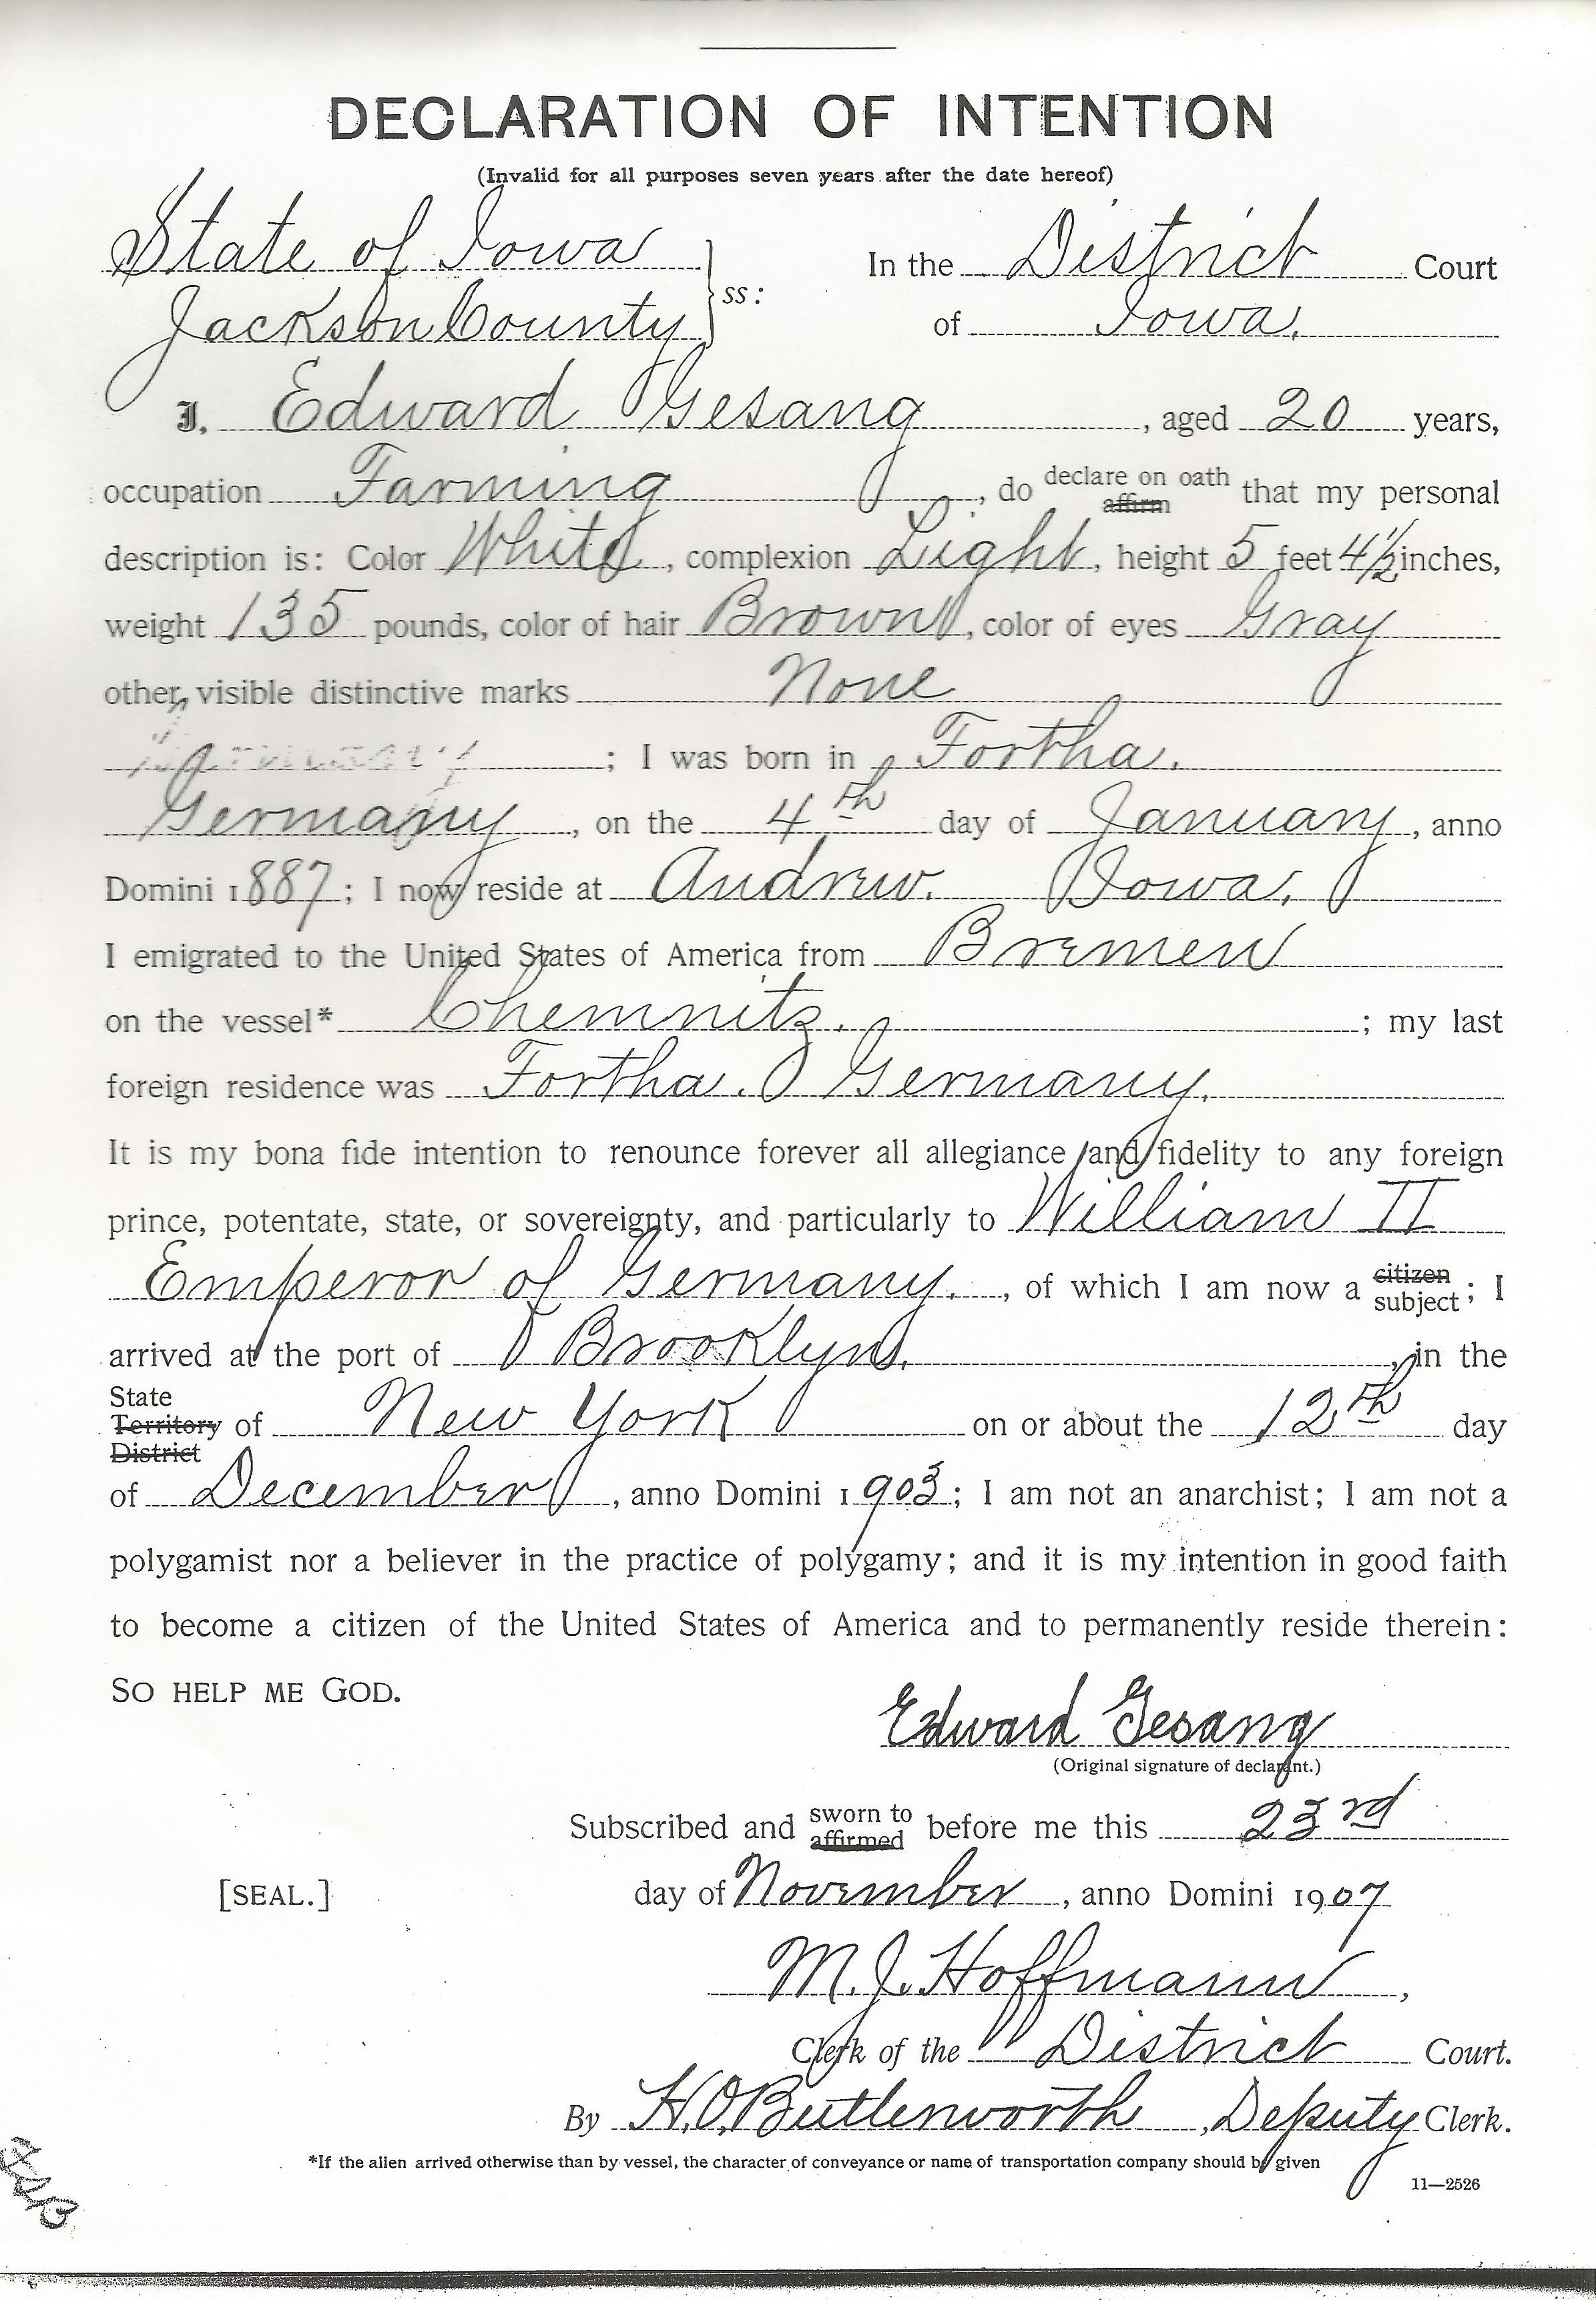 DECLARATION OF INTENTION
(Invalid for all purposes seven years after the date hereof)
State of Iowa
Jackson County
ss:
In the District Court
of Iowa.
I, Edward Gesang, aged 20 years,
occupation Farming, do declare on oath affirm that my personal
description is: Color White, complexion Light, height 5 feet 4 1/2 inches,
weight 135 pounds, color of hair Brown, color of eyes Gray
other visible distinctive marks None
; I was born in Fortha.
Germany, on the 4th day of January, anno
Domini 1887; I now reside at Andrew. Iowa.
I emigrated to the United States of America from Bremen
on the vessel* Chemnitz.; my last
foreign residence was Fortha. Germany.
It is my bona fide intention to renounce forever all allegiance and fidelity to any foreign
prince, potentate, state, or sovereignty, and particularly to William II
Emperor of Germany., of which I am now a citizen subject; I
arrived at the port of Brooklyn., in the
State Territory District of New York on or about the 12th day
of December, anno Domini 1903; I am not an anarchist; I am not a
polygamist nor a believer in the practice of polygamy; and it is my intention in good faith
to become a citizen of the United States of America and to permanently reside therein:
SO HELP ME GOD.
Edward Gesang
(Original signature of declarant.)
Subscribed and sworn to affirmed before me this 23rd
[SEAL.]
day of November, anno Domini 1907
M. J. Hoffmann,
Clerk of the District Court.
By H. O. Butterworth, Deputy Clerk.
*If the alien arrived otherwise than by vessel, the character of conveyance or name of transportation company should be given
11—2526